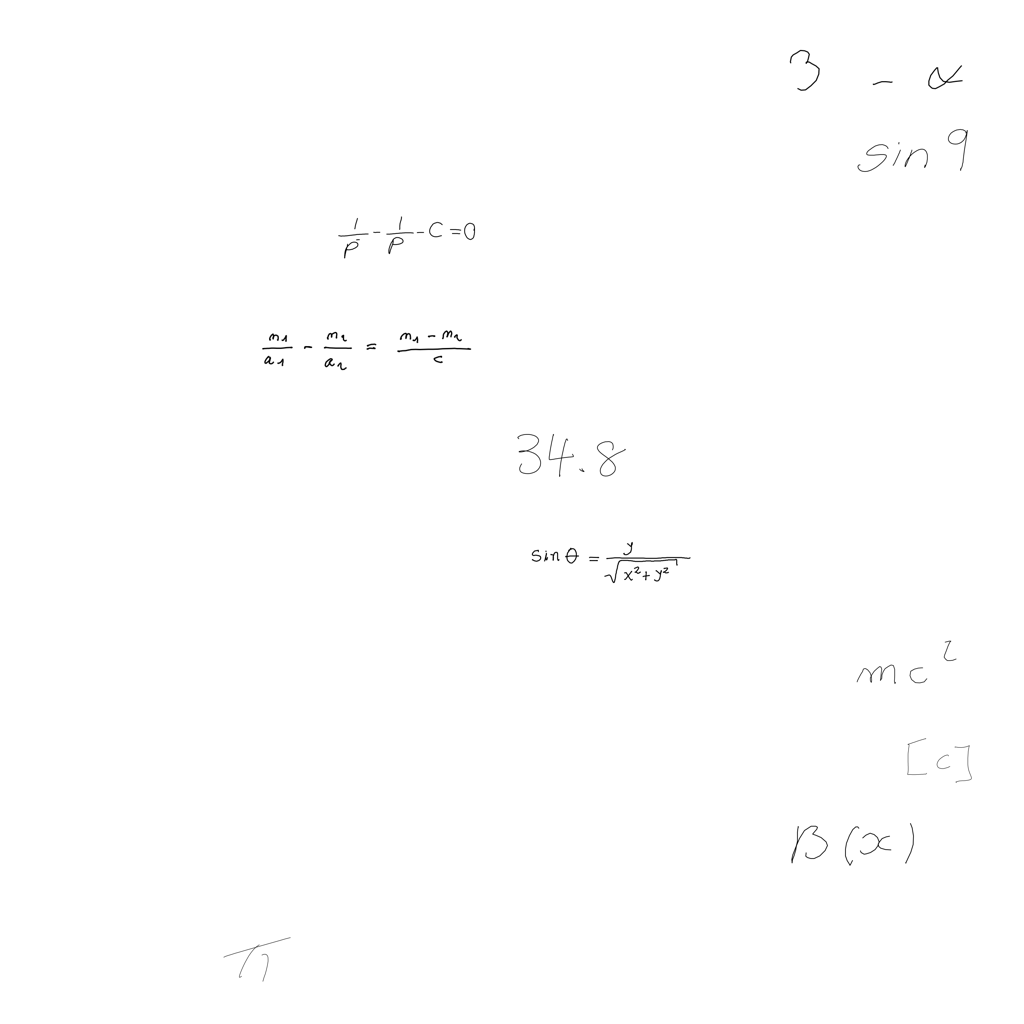 3 - α
sin 9
\frac{1}{p} - \frac{1}{p} - c = 0
\frac{n_1}{a_1} - \frac{n_2}{a_2} = \frac{n_1 - n_2}{c}
34.8
\sin \theta = \frac{y}{\sqrt{x^2 + y^2}}
mc^2
[c]
B(x)
π